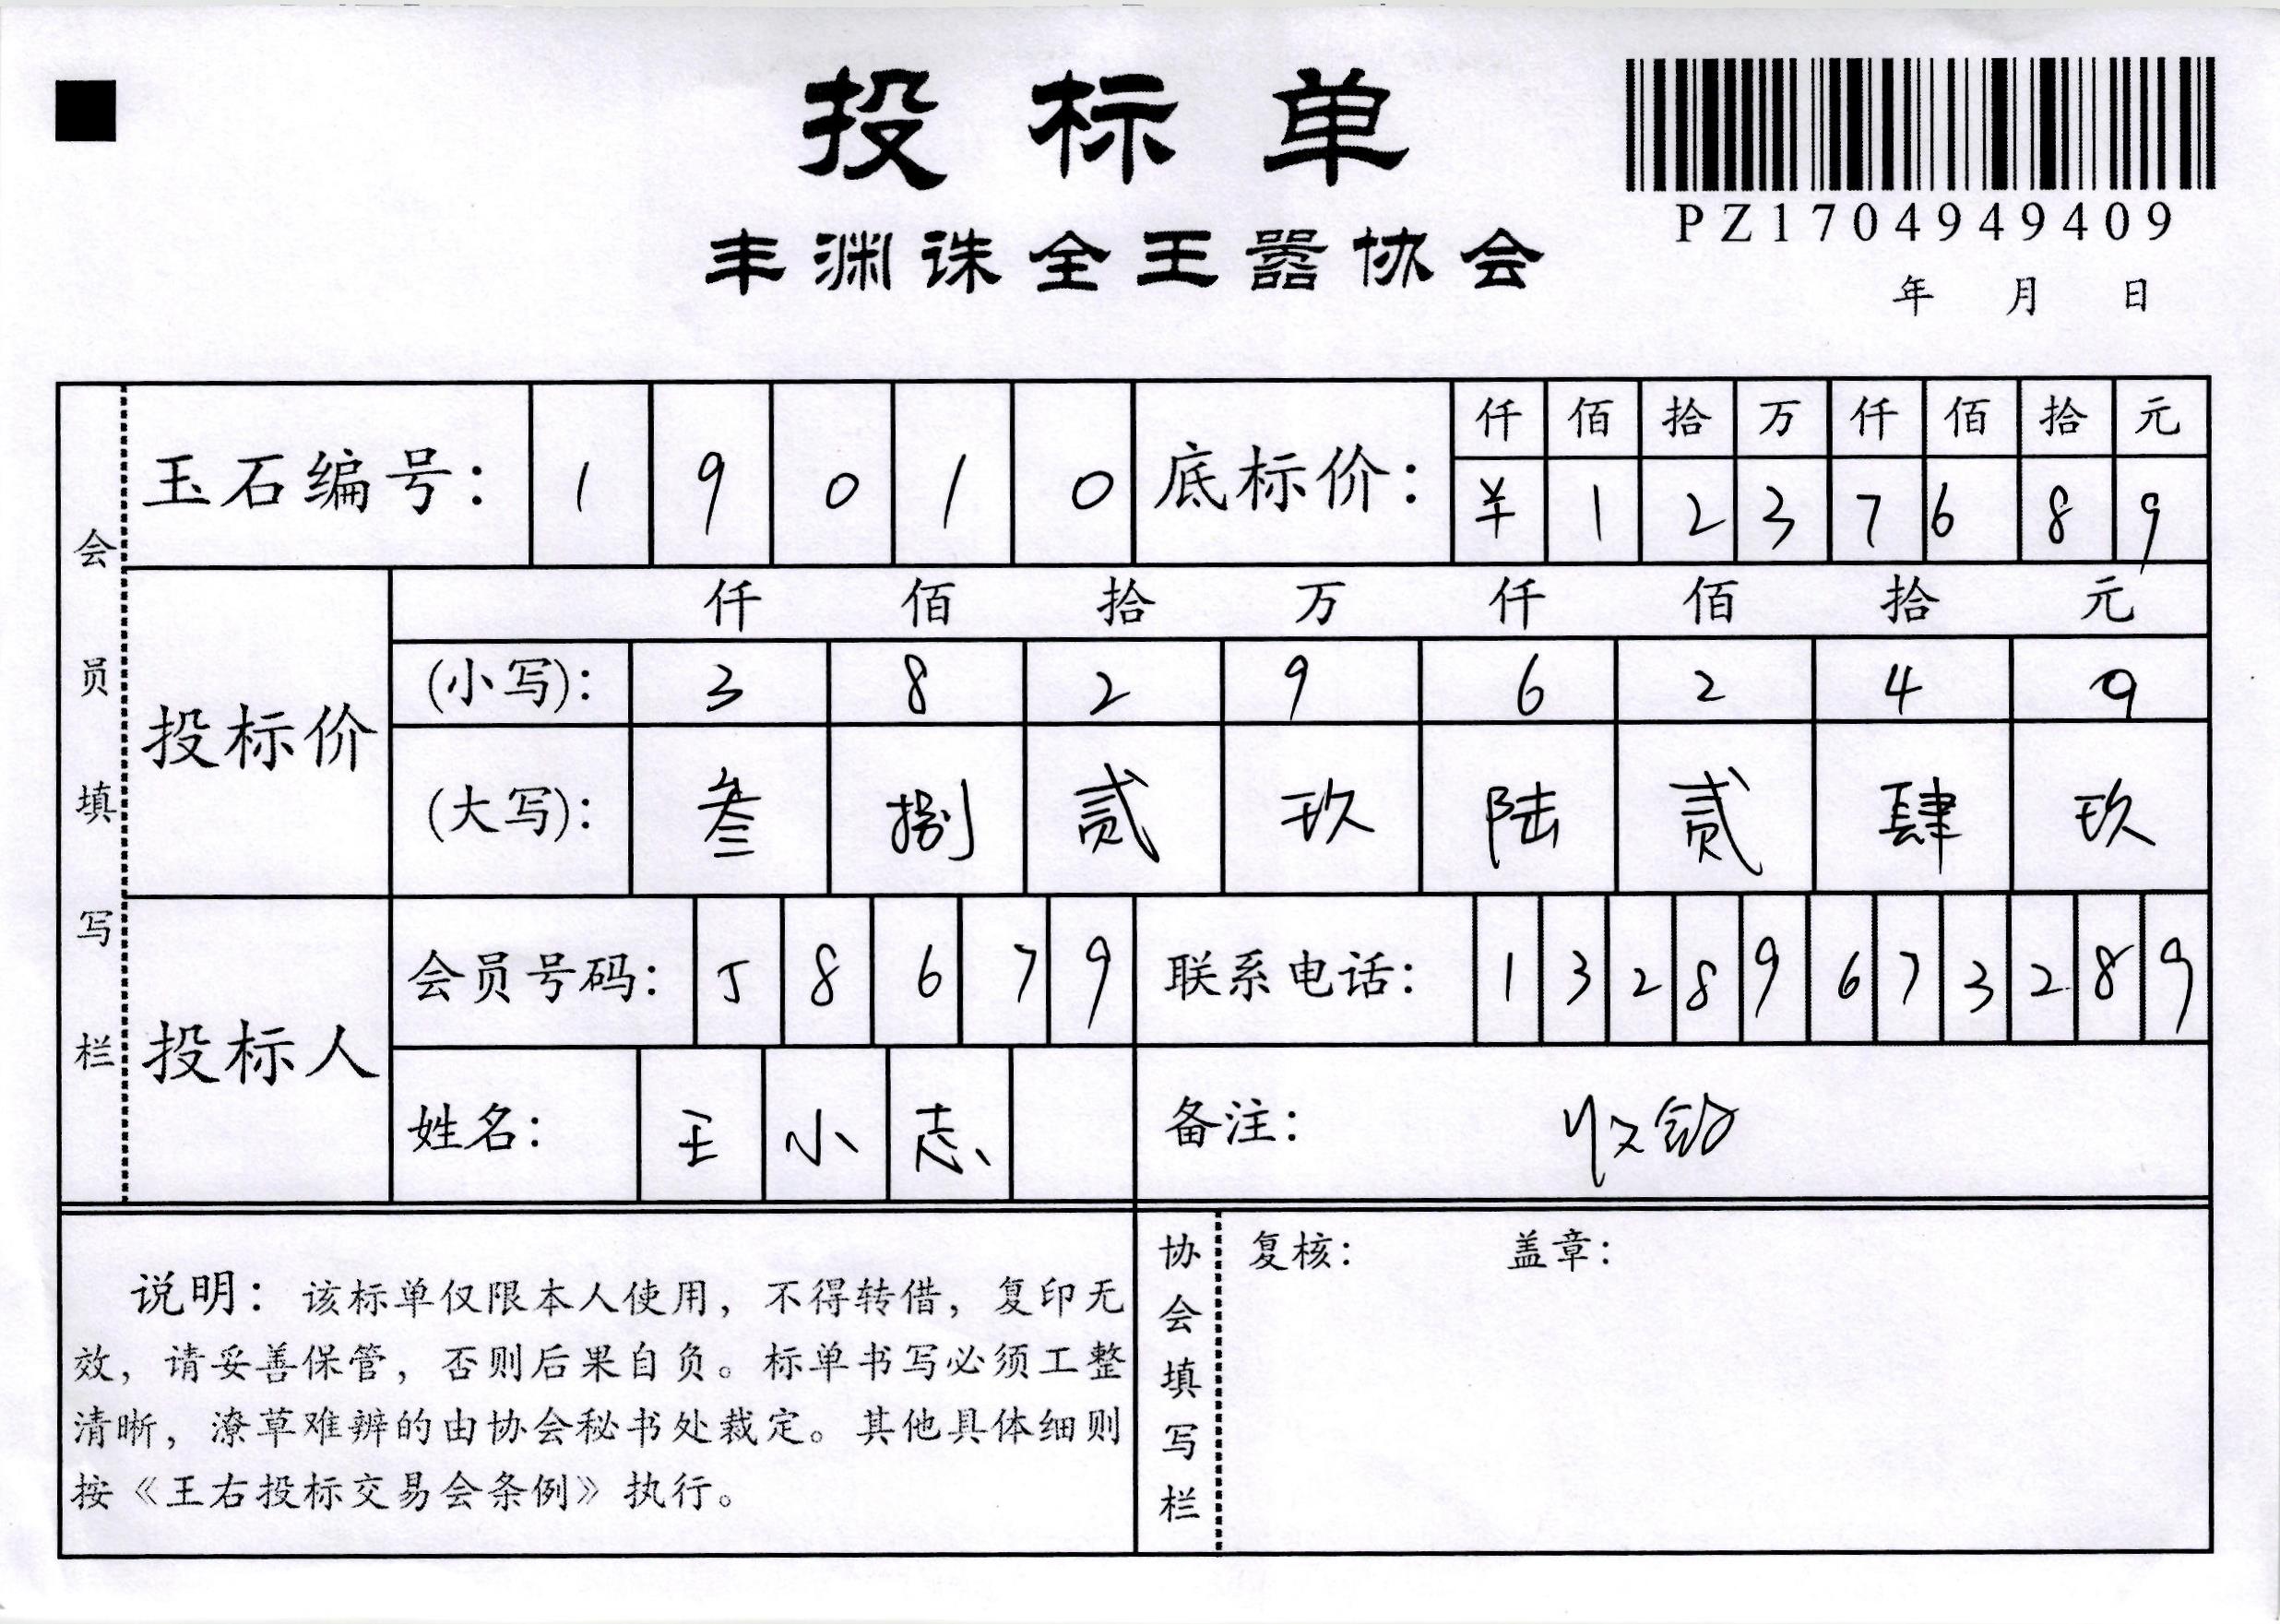 投标单
PZ1704949409
丰渊诛全王嚣协会
年 月 日
会员填写栏
玉石编号： 1 9 0 1 0
底标价：
仟 佰 拾 万 仟 佰 拾 元
¥ 1 2 3 7 6 8 9
投标价
仟 佰 拾 万 仟 佰 拾 元
(小写)： 3 8 2 9 6 2 4 9
(大写)： 叁 捌 贰 玖 陆 贰 肆 玖
投标人
会员号码： J 8 6 7 9
联系电话： 1 3 2 8 9 6 7 3 2 8 9
姓名： 王 小 志
备注：
说明：该标单仅限本人使用，不得转借，复印无
效，请妥善保管，否则后果自负。标单书写必须工整
清晰，潦草难辨的由协会秘书处裁定。其他具体细则
按《王右投标交易会条例》执行。
协会填写栏
复核： 盖章：